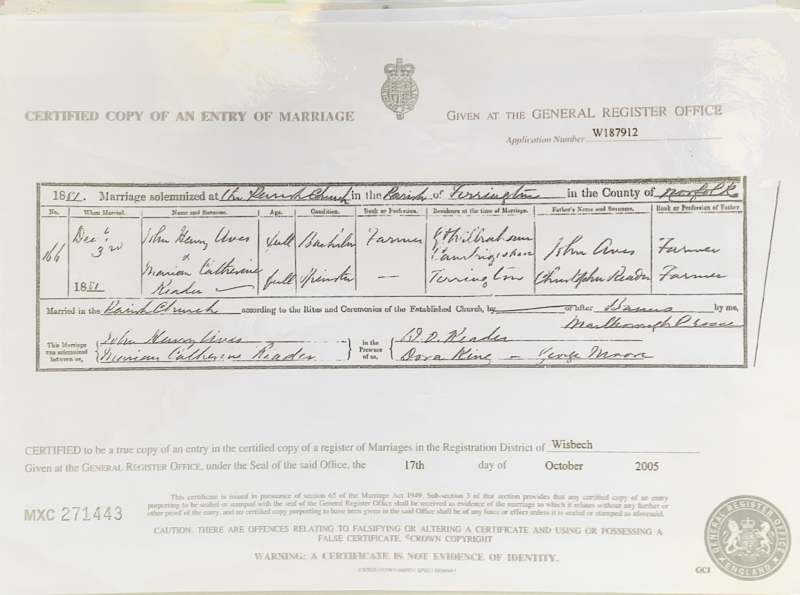 CERTIFIED COPY OF AN ENTRY OF MARRIAGE
GIVEN AT THE GENERAL REGISTER OFFICE
Application Number W187912
1881. Marriage solemnized at the Parish Church in the Parish of Terrington in the County of Norfolk
No. When Married. Name and Surname. Age. Condition. Rank or Profession. Residence at the time of Marriage. Father's Name and Surname. Rank or Profession of Father.
166 Dec 3rd 1881 John Henry Aves full Bachelor Farmer Cambridgeshire John Aves Farmer
Marian Catherine Reader full Spinster — Terrington Christopher Reader Farmer
Married in the Parish Church according to the Rites and Ceremonies of the Established Church, by or after Banns by me,
Marlborough
This Marriage was solemnized between us, John Henry Aves Marian Catherine Reader in the Presence of us, Reader Dora King – George Moore
CERTIFIED to be a true copy of an entry in the certified copy of a register of Marriages in the Registration District of Wisbech
Given at the GENERAL REGISTER OFFICE, under the Seal of the said Office, the 17th day of October 2005
MXC 271443
This certificate is issued in pursuance of section 65 of the Marriage Act 1949. Sub-section 3 of that section provides that any certified copy of an entry
purporting to be sealed or stamped with the seal of the General Register Office shall be received as evidence of the marriage to which it relates without any further or
other proof of the entry, and no certified copy purporting to have been given in the said Office shall be of any force or effect unless it is sealed or stamped as aforesaid.
CAUTION: THERE ARE OFFENCES RELATING TO FALSIFYING OR ALTERING A CERTIFICATE AND USING OR POSSESSING A
FALSE CERTIFICATE. ©CROWN COPYRIGHT
WARNING: A CERTIFICATE IS NOT EVIDENCE OF IDENTITY.
GENERAL REGISTER OFFICE
ENGLAND